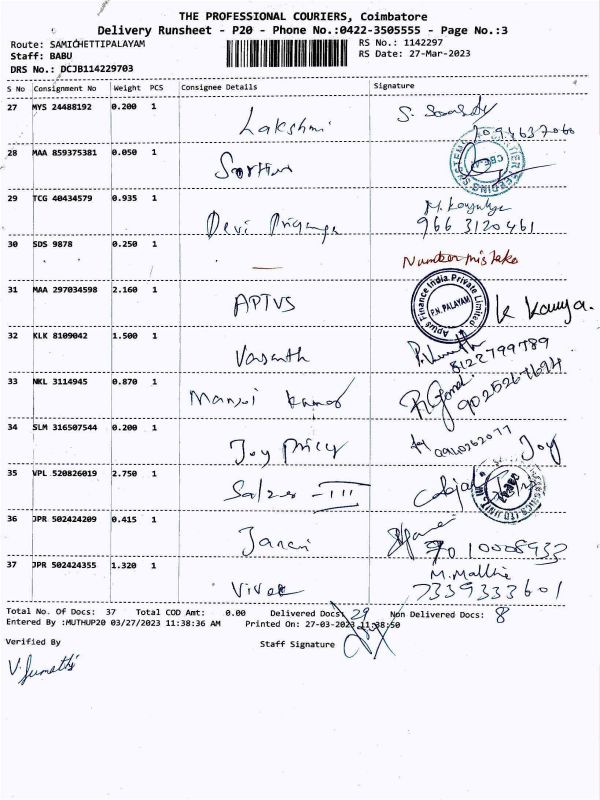 THE PROFESSIONAL COURIERS, Coimbatore
Delivery Runsheet - P20 - Phone No.:0422-3505555 - Page No.:3
Route: SAMICHETTIPALAYAM RS No.: 1142297
Staff: BABU RS Date: 27-Mar-2023
DRS No.: DCJB114229703
S No Consignment No Weight PCS Consignee Details Signature
27 MYS 24488192 0.200 1 Lakshmi S.
28 MAA 859375381 0.050 1
29 TCG 40434579 0.935 1 Devi Priyanga 966 3120461
30 SDS 9878 0.250 1 — Number mistake
31 MAA 297034598 2.160 1 APTVS Aptus Finance India Private Limited P.N. PALAYAM K Kavya.
32 KLK 8109042 1.500 1 Vasanth 8122799789
33 NKL 3114945 0.870 1 Kumar
34 SLM 316507544 0.200 1 Joy Pricy Joy
35 VPL 520826019 2.750 1 Salzer - III
36 JPR 502424209 0.415 1
37 JPR 502424355 1.320 1 Vivek 7339333601
Total No. Of Docs: 37 Total COD Amt: 0.00 Delivered Docs: 29 Non Delivered Docs: 8
Entered By :MUTHUP20 03/27/2023 11:38:36 AM Printed On: 27-03-2023 11:38:50
Verified By Staff Signature
V. Sumathi